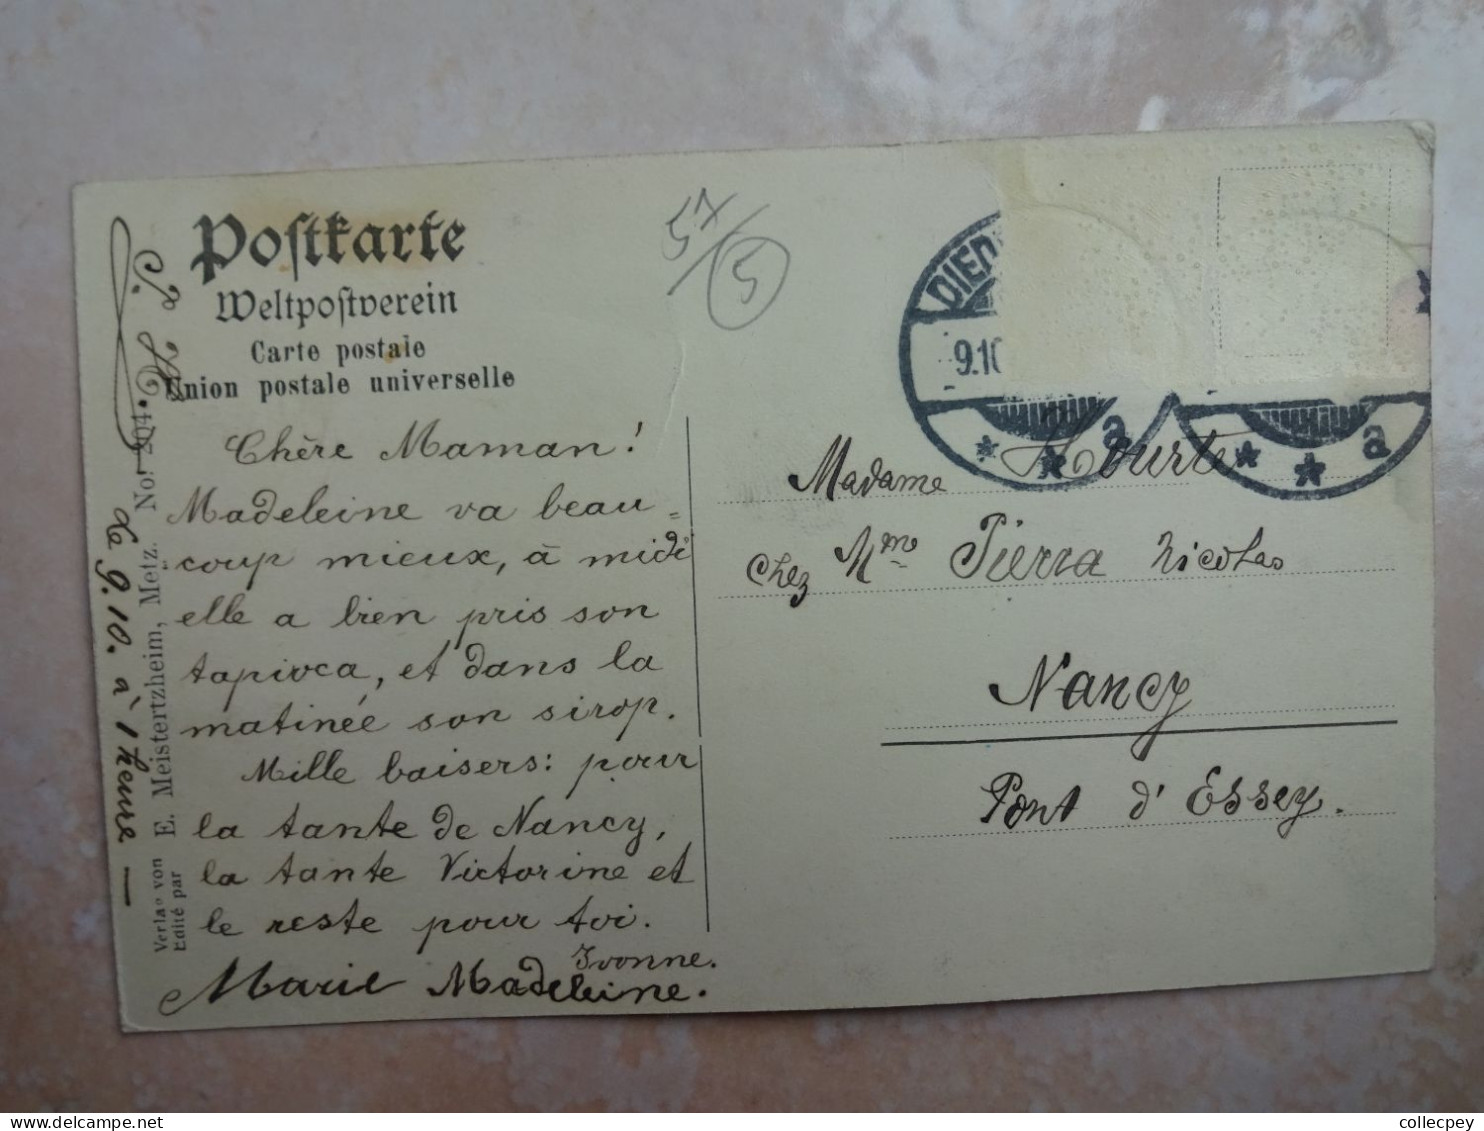 Postkarte
Weltpostverein
Carte postale
Union postale universelle
57/5
DIED
9.10
a
a
Chère Maman!
Madeleine va beau=
coup mieux, à midi
elle a bien pris son
tapioca, et dans la
matinée son sirop.
Mille baisers: pour
la tante de Nancy,
la tante Victorine et
le reste pour toi.
Yvonne.
Marie Madeleine.
Madame Hourte
chez Mme Pierra Nicolas
Nancy
Pont d'Essey.
le 9.10. à 1 heure —
Verlag von
Edité par
E. Meistertzheim, Metz. No. 204.
collecpey